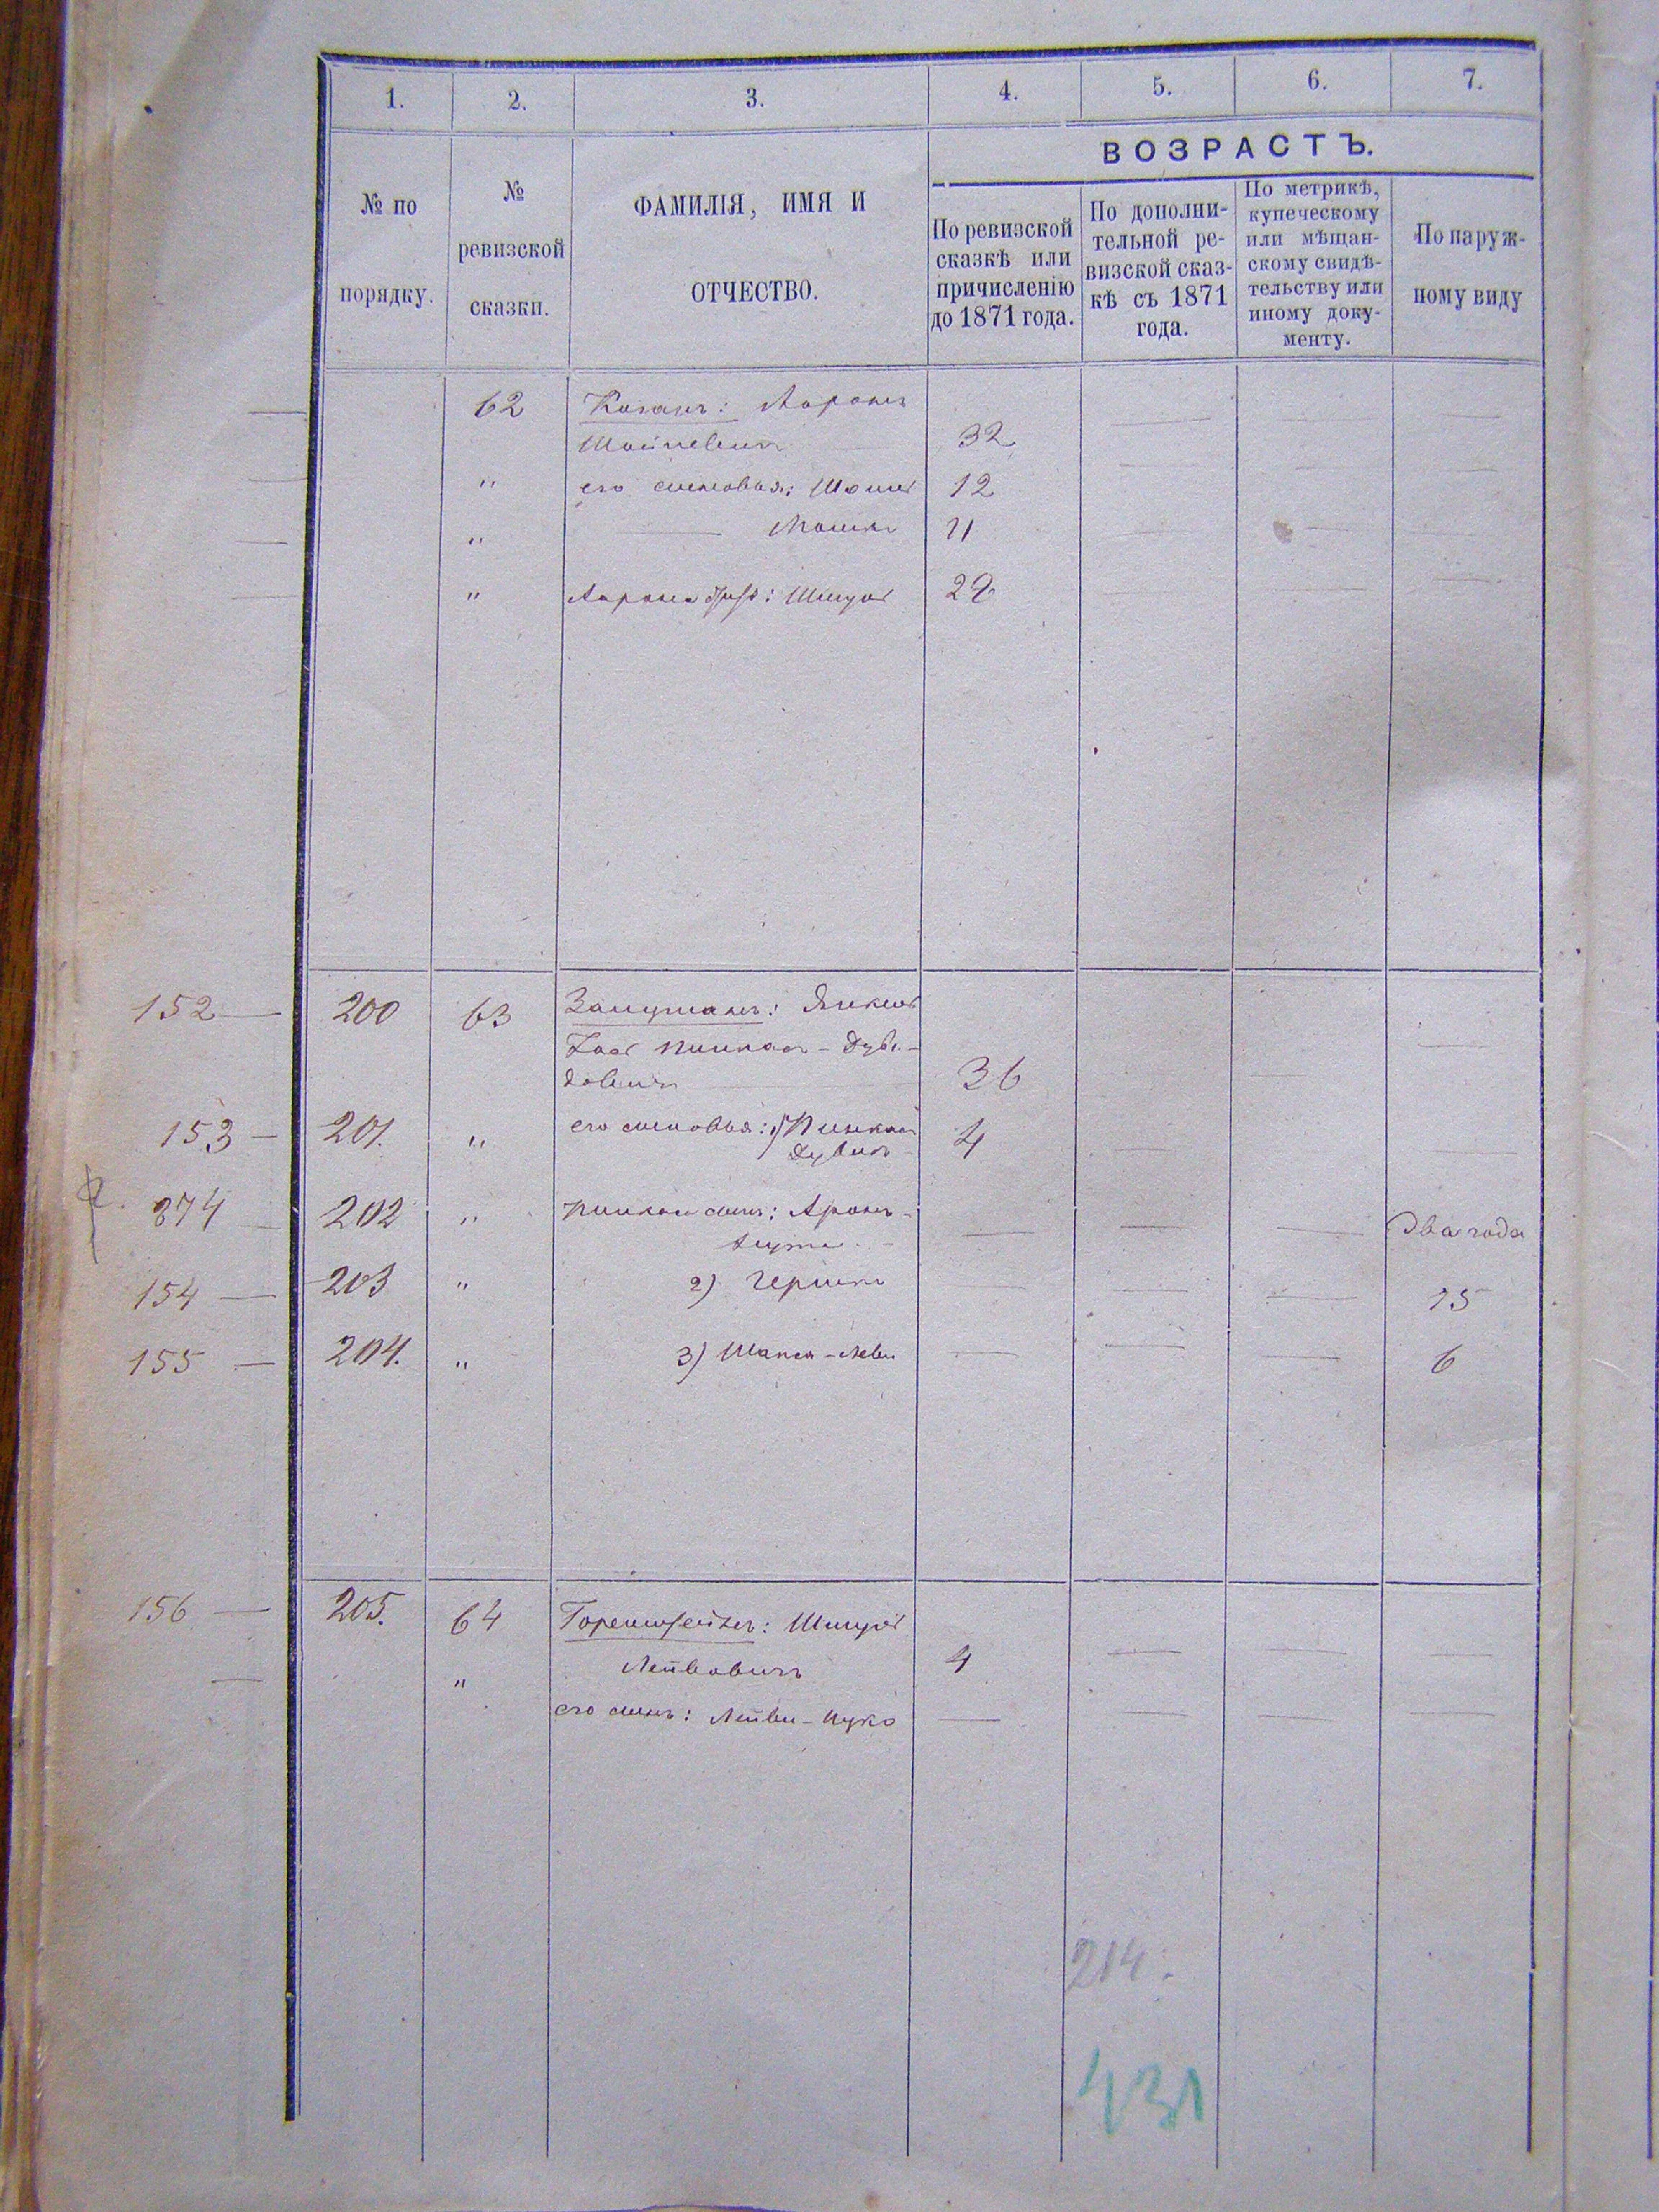 1. 2. 3. 4. 5. 6. 7.
ВОЗРАСТЪ.
№ по порядку.
№ ревизской сказки.
ФАМИЛІЯ, ИМЯ И ОТЧЕСТВО.
По ревизской сказкѣ или причисленію до 1871 года.
По дополни-
тельной ре-
визской сказ-
кѣ съ 1871
года.
По метрикѣ,
купеческому
или мѣщан-
скому свидѣ-
тельству или
иному доку-
менту.
По наруж-
ному виду
62 Коганъ: Ааронъ
32
" его сыновья: 12
" Мошко 11
" Аарона братъ: Шмуль
152 — 200 63 Янкель
Пинхасъ - Дуви-
довичъ 36
153 — 201. " его сыновья: 1) Пинхасъ
Дувидъ 4
874 — 202 " сынъ: Аронъ-
Два года
154 — 203 " 2) Гершко 15
155 — 204. " 3) 6
156 — 205. 64 Шмуль
" Лейбовичъ 4
его сынъ: Лейба-
214.
431